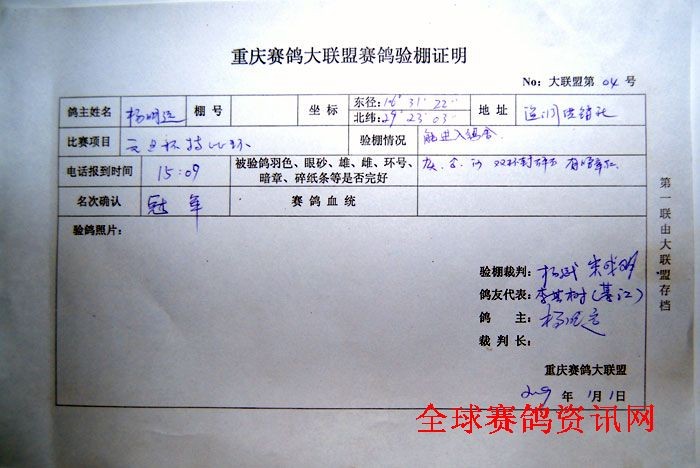 重庆赛鸽大联盟赛鸽验棚证明
No: 大联盟第 04 号
鸽主姓名 杨明 棚号 坐标 东经: 31' 22'' 北纬: 29° 23' 03'' 地址
比赛项目 元旦杯特比环 验棚情况 能进入鸽舍
电话报到时间 15:09 被验鸽羽色、眼砂、雄、雌、环号、暗章、碎纸条等是否完好 灰
名次确认 冠军 赛鸽血统
验鸽照片:
验棚裁判: 杨斌
鸽友代表: 李其树(綦江)
鸽主: 杨
裁判长:
重庆赛鸽大联盟
2009 年 1月1日
第一联由大联盟存档
全球赛鸽资讯网